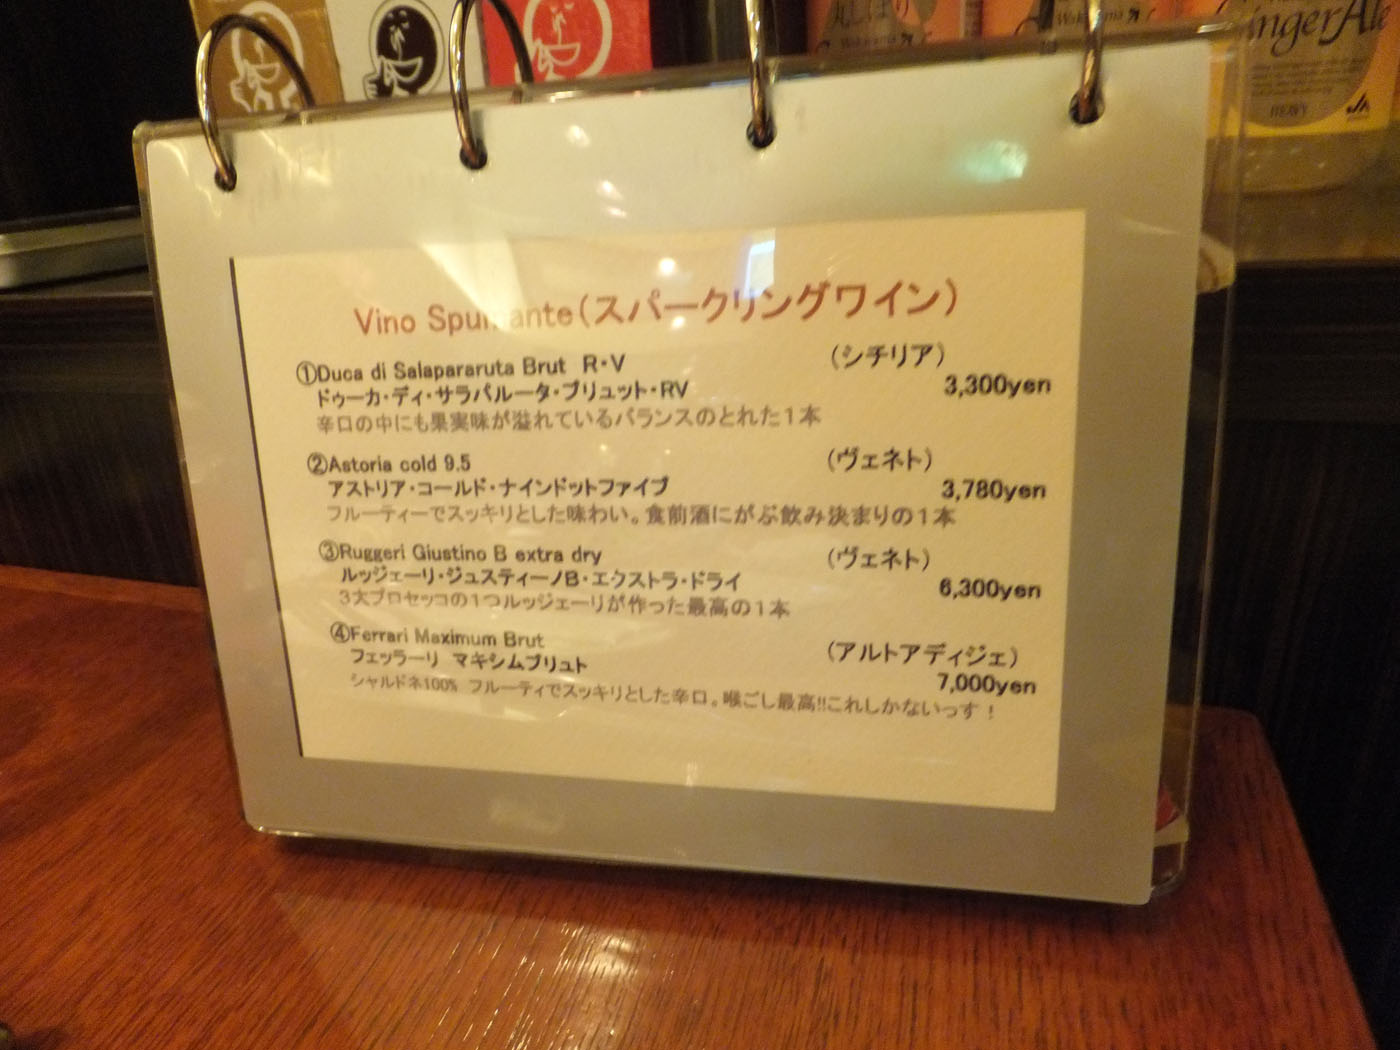 Wakayama
Wakayama
GingerAle
HEAVY
JA
Vino Spumante(スパークリングワイン)
①Duca di Salapararuta Brut R・V (シチリア)
ドゥーカ・ディ・サラパルータ・ブリュット・RV 3,300yen
辛口の中にも果実味が溢れているバランスのとれた1本
②Astoria cold 9.5 (ヴェネト)
アストリア・コールド・ナインドットファイブ 3,780yen
フルーティーでスッキリとした味わい。食前酒にがぶ飲み決まりの1本
③Ruggeri Giustino B extra dry (ヴェネト)
ルッジェーリ・ジュスティーノB・エクストラ・ドライ 6,300yen
3大プロセッコの1つルッジェーリが作った最高の1本
④Ferrari Maximum Brut (アルトアディジェ)
フェッラーリ マキシムブリュト 7,000yen
シャルドネ100% フルーティでスッキリとした辛口。喉ごし最高!!これしかないっす!